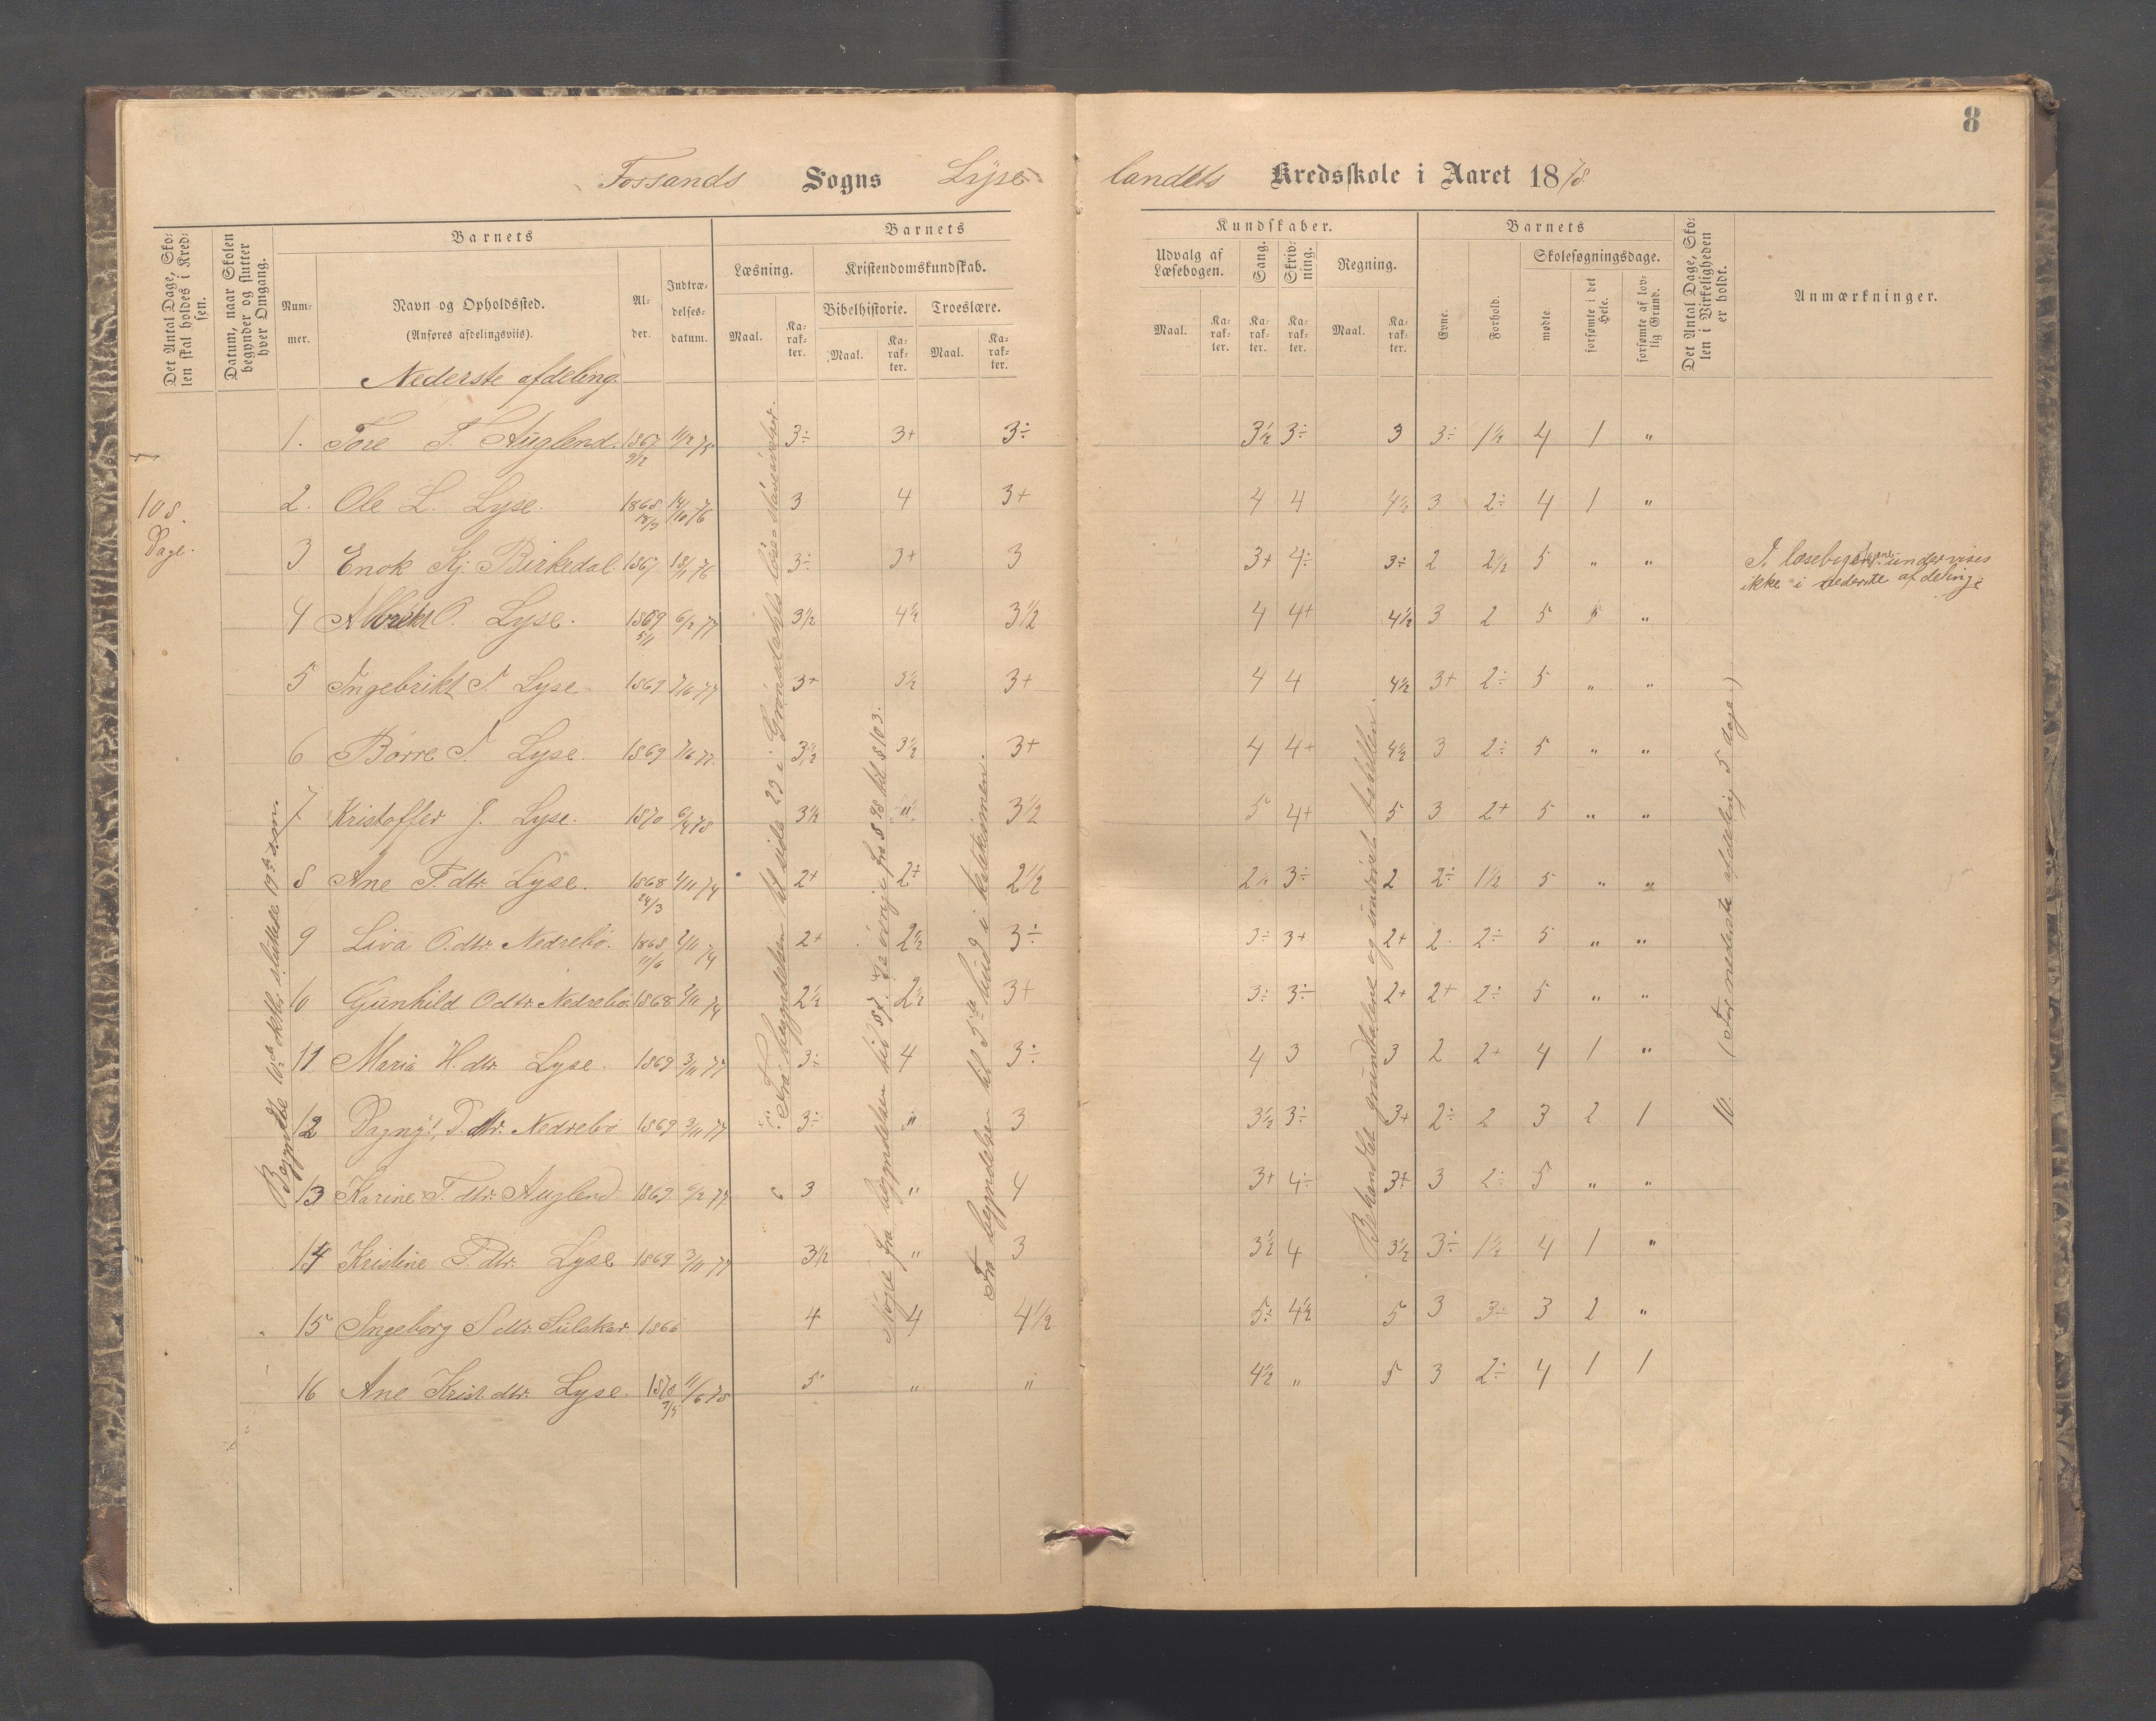 8
Fossands Sogns Lyse-
landets Kredsskole i Aaret 1878.
Det Antal Dage, Sko-
len skal holdes i Kred-
sen.
Datum, naar Skolen
begynder og slutter
hver Omgang.
Barnets
Num-
mer.
Navn og Opholdssted.
(Anføres afdelingsviis).
Al-
der.
Indtræ-
delses-
datum.
Barnets
Læsning.
Maal.
Ka-
rak-
ter.
Kristendomskundskab.
Bibelhistorie.
Maal.
Ka-
rak-
ter.
Troeslære.
Maal.
Ka-
rak-
ter.
Kundskaber.
Udvalg af
Læsebogen.
Maal.
Ka-
rak-
ter.
Sang.
Ka-
rak-
ter.
Skriv-
ning.
Ka-
rak-
ter.
Regning.
Maal.
Ka-
rak-
ter.
Barnets
Evne.
Forhold.
Skolesøgningsdage.
mødte.
forsømte i det
Hele.
forsømte af lov-
lig Grund.
Det Antal Dage, Sko-
len i Virkeligheden
er holdt.
Anmærkninger.
Nederste afdeling.
1. Tore T. Auglend. 1867 9/12 11/2 75 3÷ 3+ 3÷ 3½ 3÷ 3 3÷ 1½ 4 1 "
2. Ole L. Lyse. 1868 18/3 14/10 76 3 4 3+ 4 4 4½ 3 2÷ 4 1 "
3. Enok Kj. Birkedal 1867 18/11 76 3÷ 3+ 3 3+ 4÷ 3÷ 2 2½ 5 " "
4 O. Lyse. 1869 5/1 6/2 77 3½ 4½ 3½ 4 4+ 4½ 3 2 5 "
5 Ingebrikt T. Lyse. 1869 7/6 77 3+ 3½ 3+ 4 4 4½ 3+ 2÷ 5 " "
6 Børre T. Lyse. 1869 7/6 77. 3½ 3½ 3+ 4 4+ 4½ 3 2÷ 5 " "
7 Kristoffer J. Lyse. 1870 6/4 78 3½ " 3½ 5 4+ 5 3 2+ 5 " "
8 Ane T. dtr. Lyse. 1868 24/3 2/11 74 2+ 2+ 2½ 2½ 3÷ 2 2÷ 1½ 5 " "
9 Liva O. dtr. Nedrebø. 1868 11/6 2/11 74 2+ 2½ 3÷ 3÷ 3+ 2+ 2. 2÷ 5 " "
10 Gunhild O dtr. Nedrebø 1868 2/11 74 2½ 2½ 3+ 3÷ 3÷ 2+ 2+ 2÷ 5 " "
11 Maria H. dtr. Lyse. 1869 3/11 77 3÷ 4 3÷ 4 3 3 2 2+ 4 1 "
12 Dagny P. dtr. Nedrebø 1869 3/11 77 3÷ " 3 3½ 3÷ 3+ 2÷ 2 3 2 1
13 Karine T. dtr. Auglend 1869 6/2 77 3 " 4 3+ 4÷ 3+ 3 2÷ 5 " "
14 Kristine T. dtr. Lyse 1869 3/11 77 3½ " 3 3½ 4 3½ 3÷ 1½ 4 1 "
15 Ingeborg S dtr. 1866 4 4 4½ 5÷ 4½ 5 3 3÷ 3 2 "
16 Ane Krist. dtr. Lyse. 1870 11/6 78 5 " " 4½ " 5 3 2÷ 4 1 1
108.
Dage.
Begyndte 10de oktbr. sluttede 19de s.m.
Fra begyndelsen til side 23 i Grøndahls
Nogle fra begyndelsen til § 7. De øvrige fra § 98 til § 103.
Fra begyndelsen til 5te bud i katekismen.
Behandlet grundtalene og indøvet tabellen.
10. (For nederste afdeling 5 dage.)
I undervises
ikke i nederste afdeling